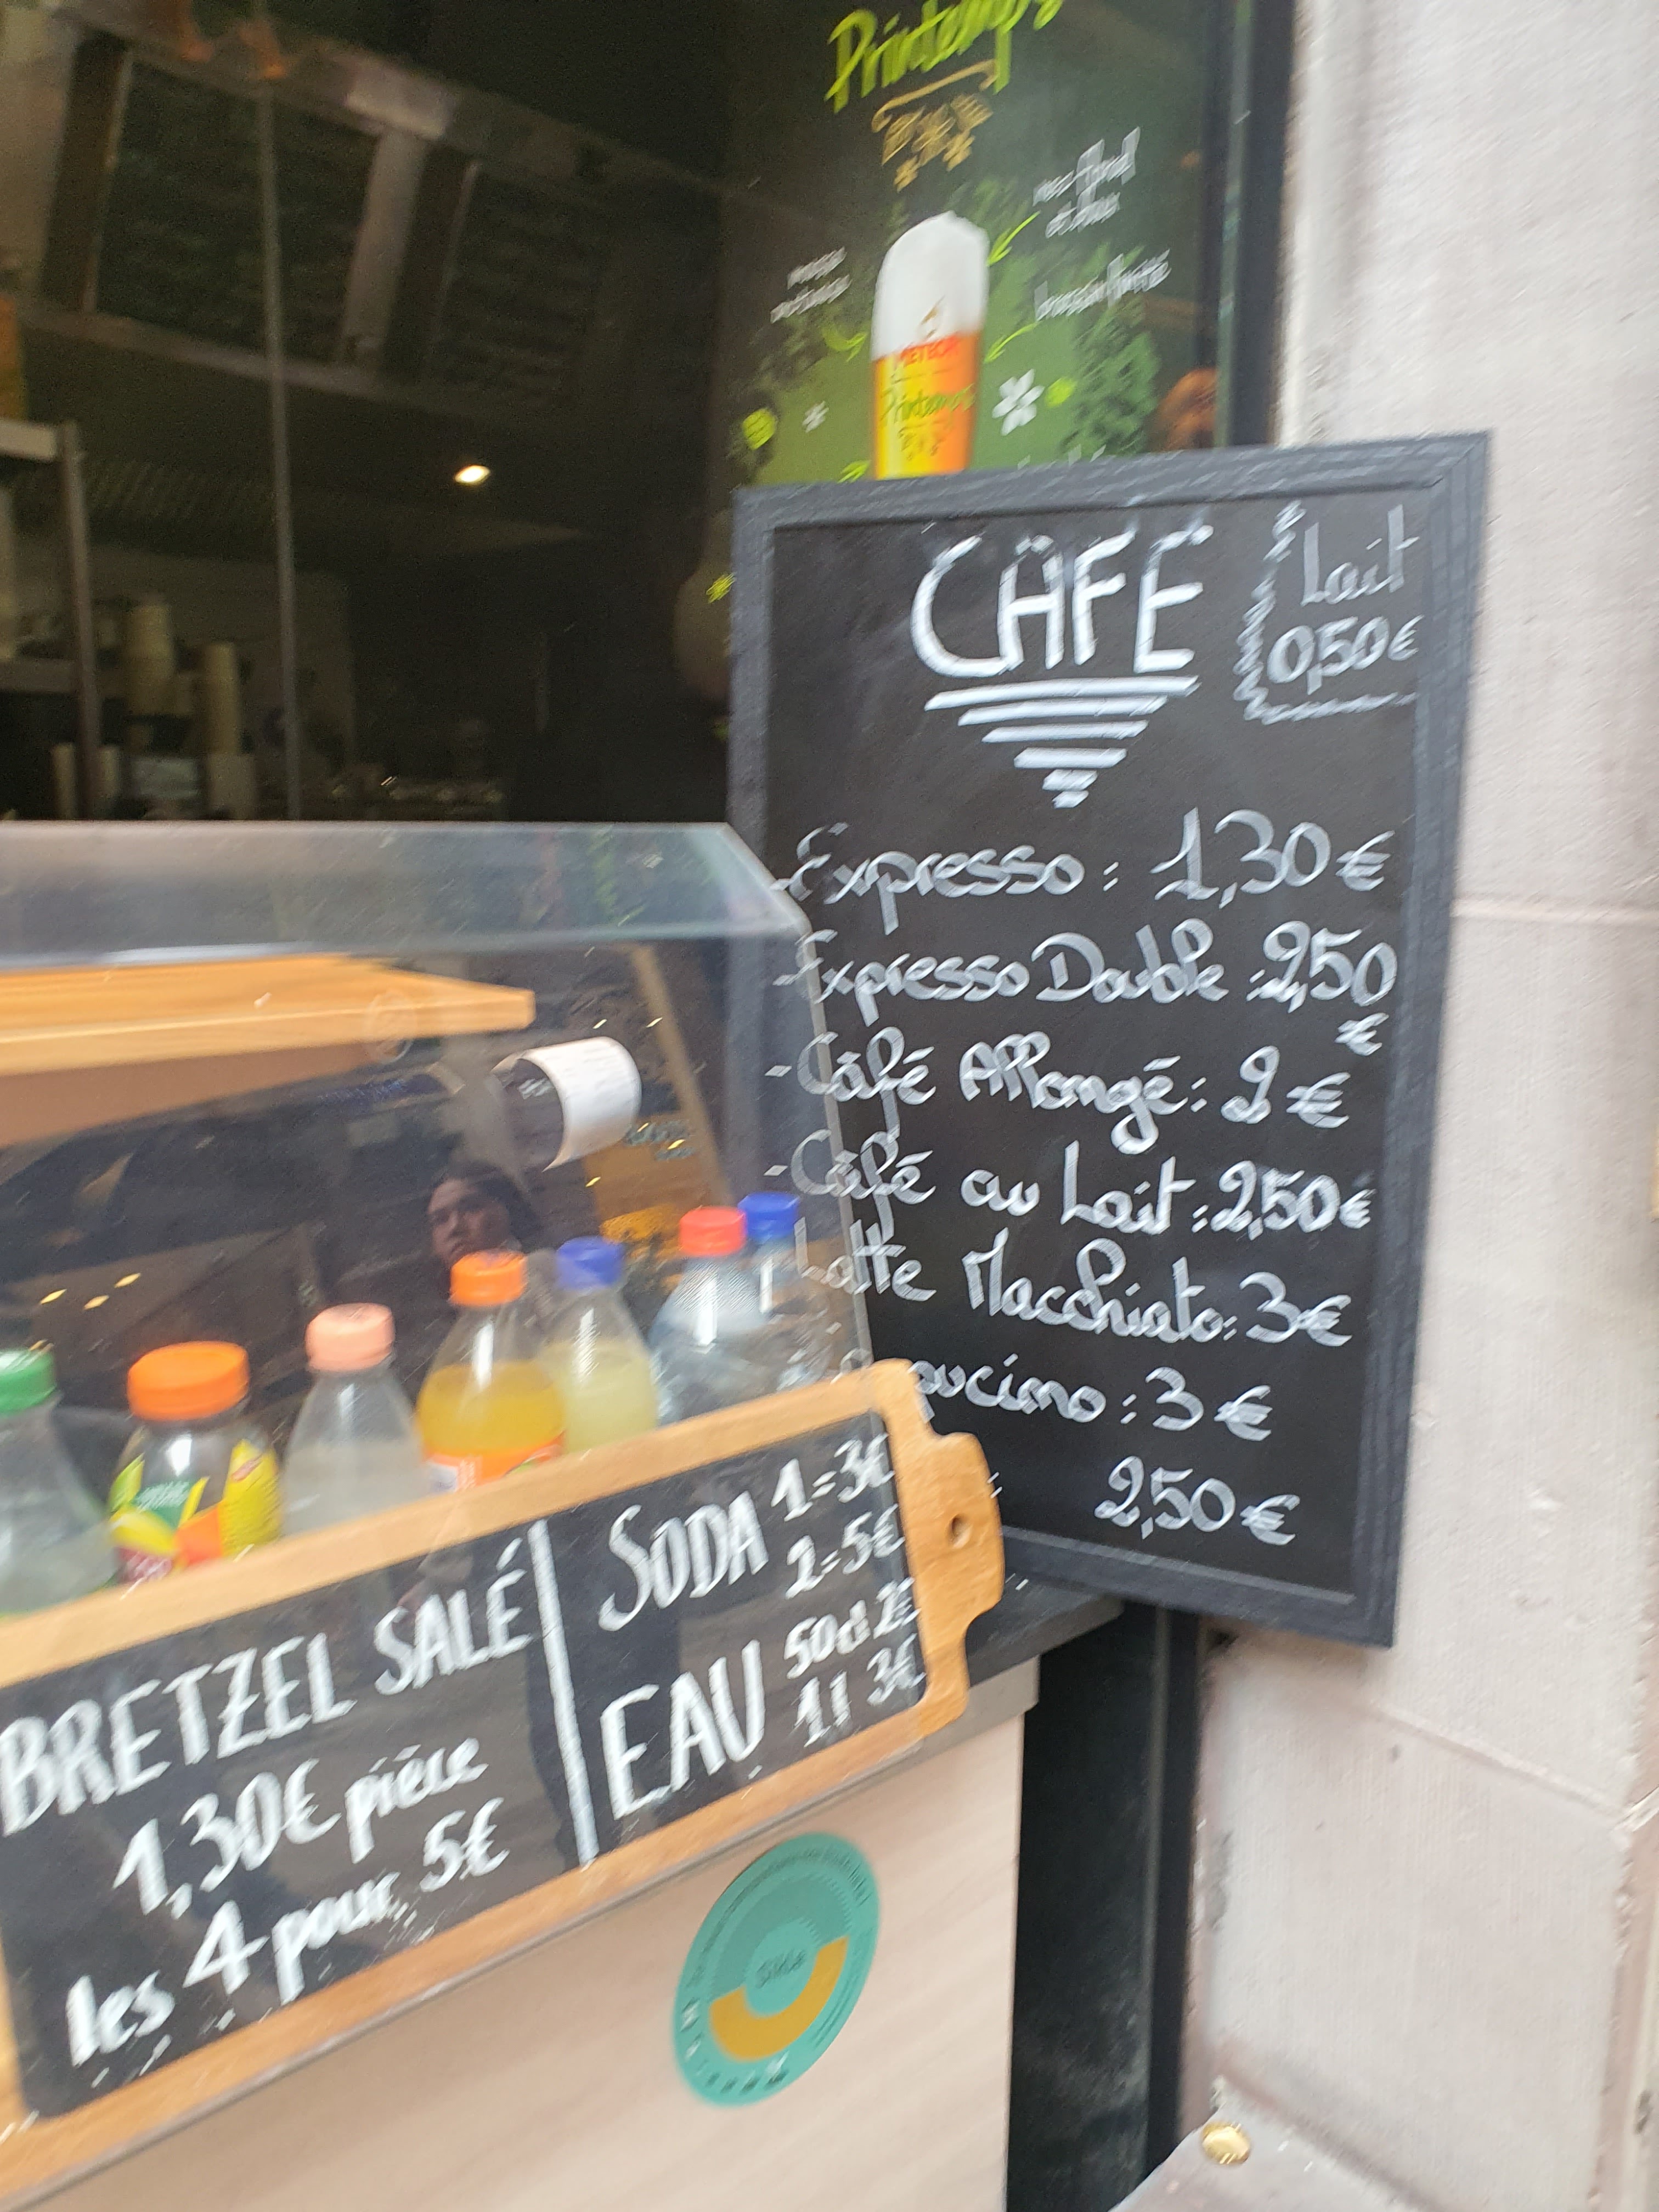 Printemps
METEOR
Printemps
CAFE
Lait
0,50€
- Expresso : 1,30€
- Expresso Double : 2,50
€
- Café Allongé : 2€
- Café au Lait : 2,50€
Latte Macchiato : 3€
pucino : 3€
2,50€
BRETZEL SALÉ
1,30€ pièce
les 4 pour 5€
SODA 1=3€
2=5€
EAU 50cl 2€
1l 3€